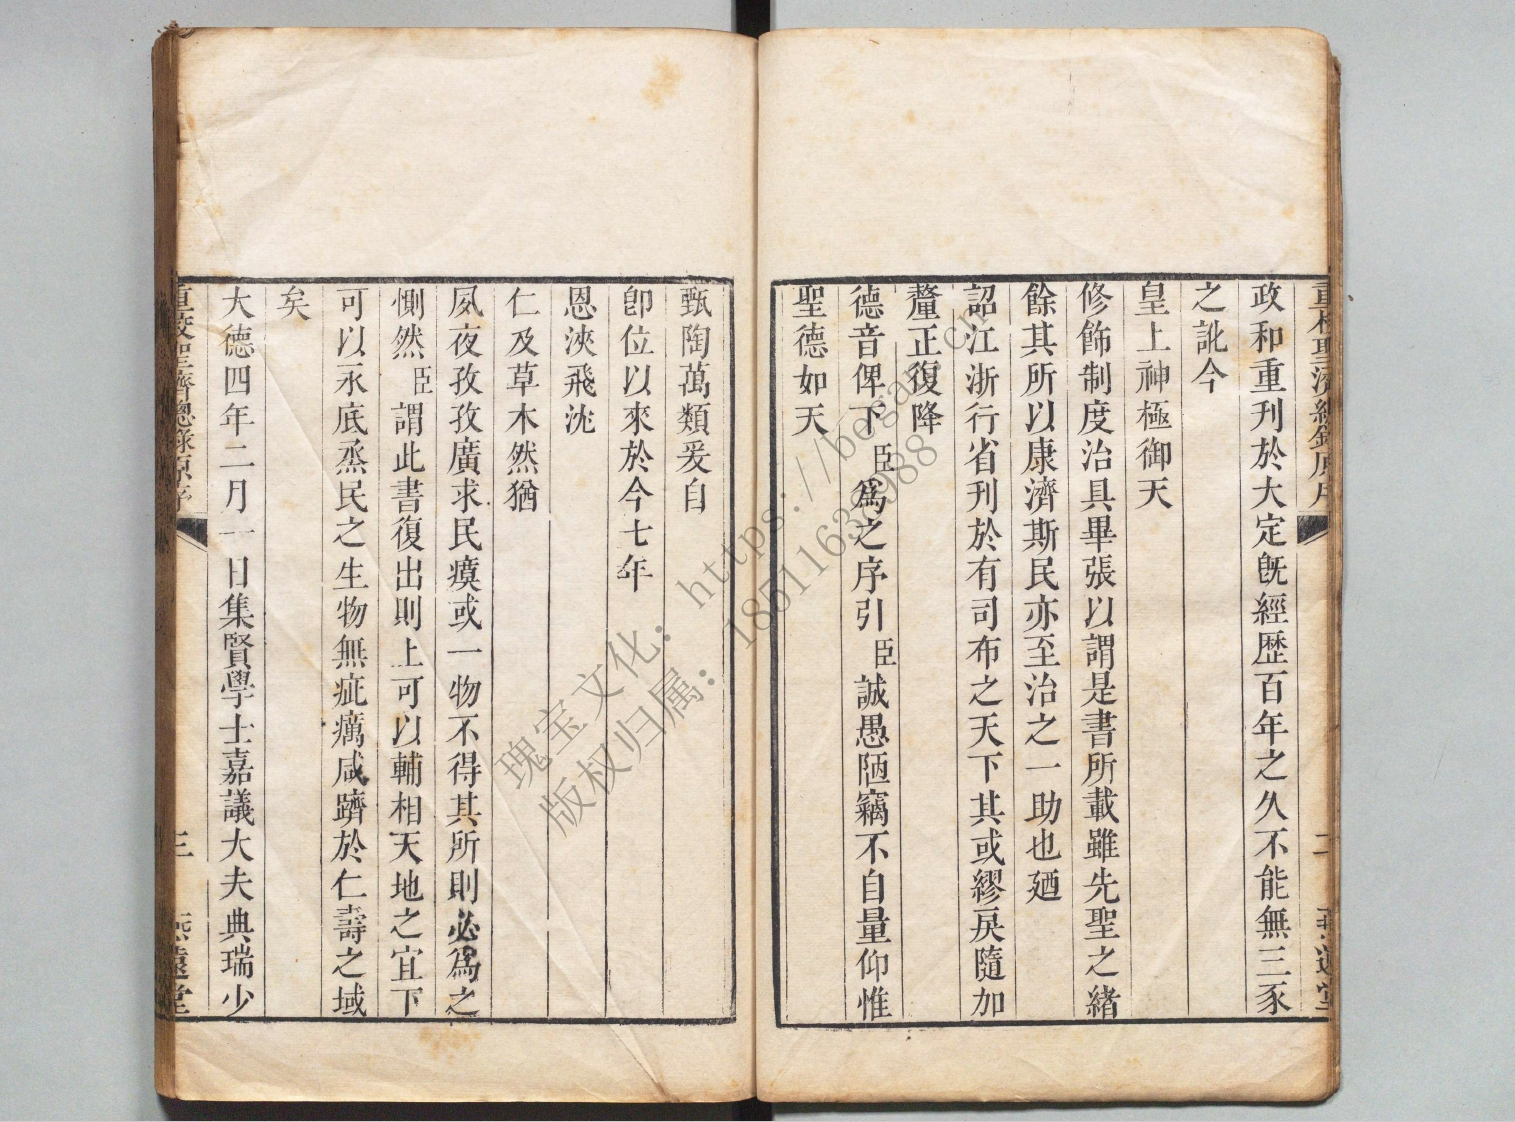 政和重刊於大定旣經歴百年之久不能無三豕
之訛今
皇上神極御天
修飾制度治具畢張以謂是書所載雖先聖之緒
餘其所以康濟斯民亦至治之一助也廼
詔江浙行省刊於有司布之天下其或繆戾隨加
釐正復降
德音俾下臣爲之序引臣誠愚陋竊不自量仰惟
聖德如天
甄陶萬類爰自
卽位以來於今七年
恩浹飛沈
仁及草木然猶
夙夜孜孜廣求民瘼或一物不得其所則必爲之
惻然臣謂此書復出則上可以輔相天地之宜下
可以永底烝民之生物無疵癘咸躋於仁壽之域
矣
大德四年二月一日集賢學士嘉議大夫典瑞少
重校聖濟總錄原序
三
燕遠堂
瑰宝文化：https://bogar.cn
版权归属：